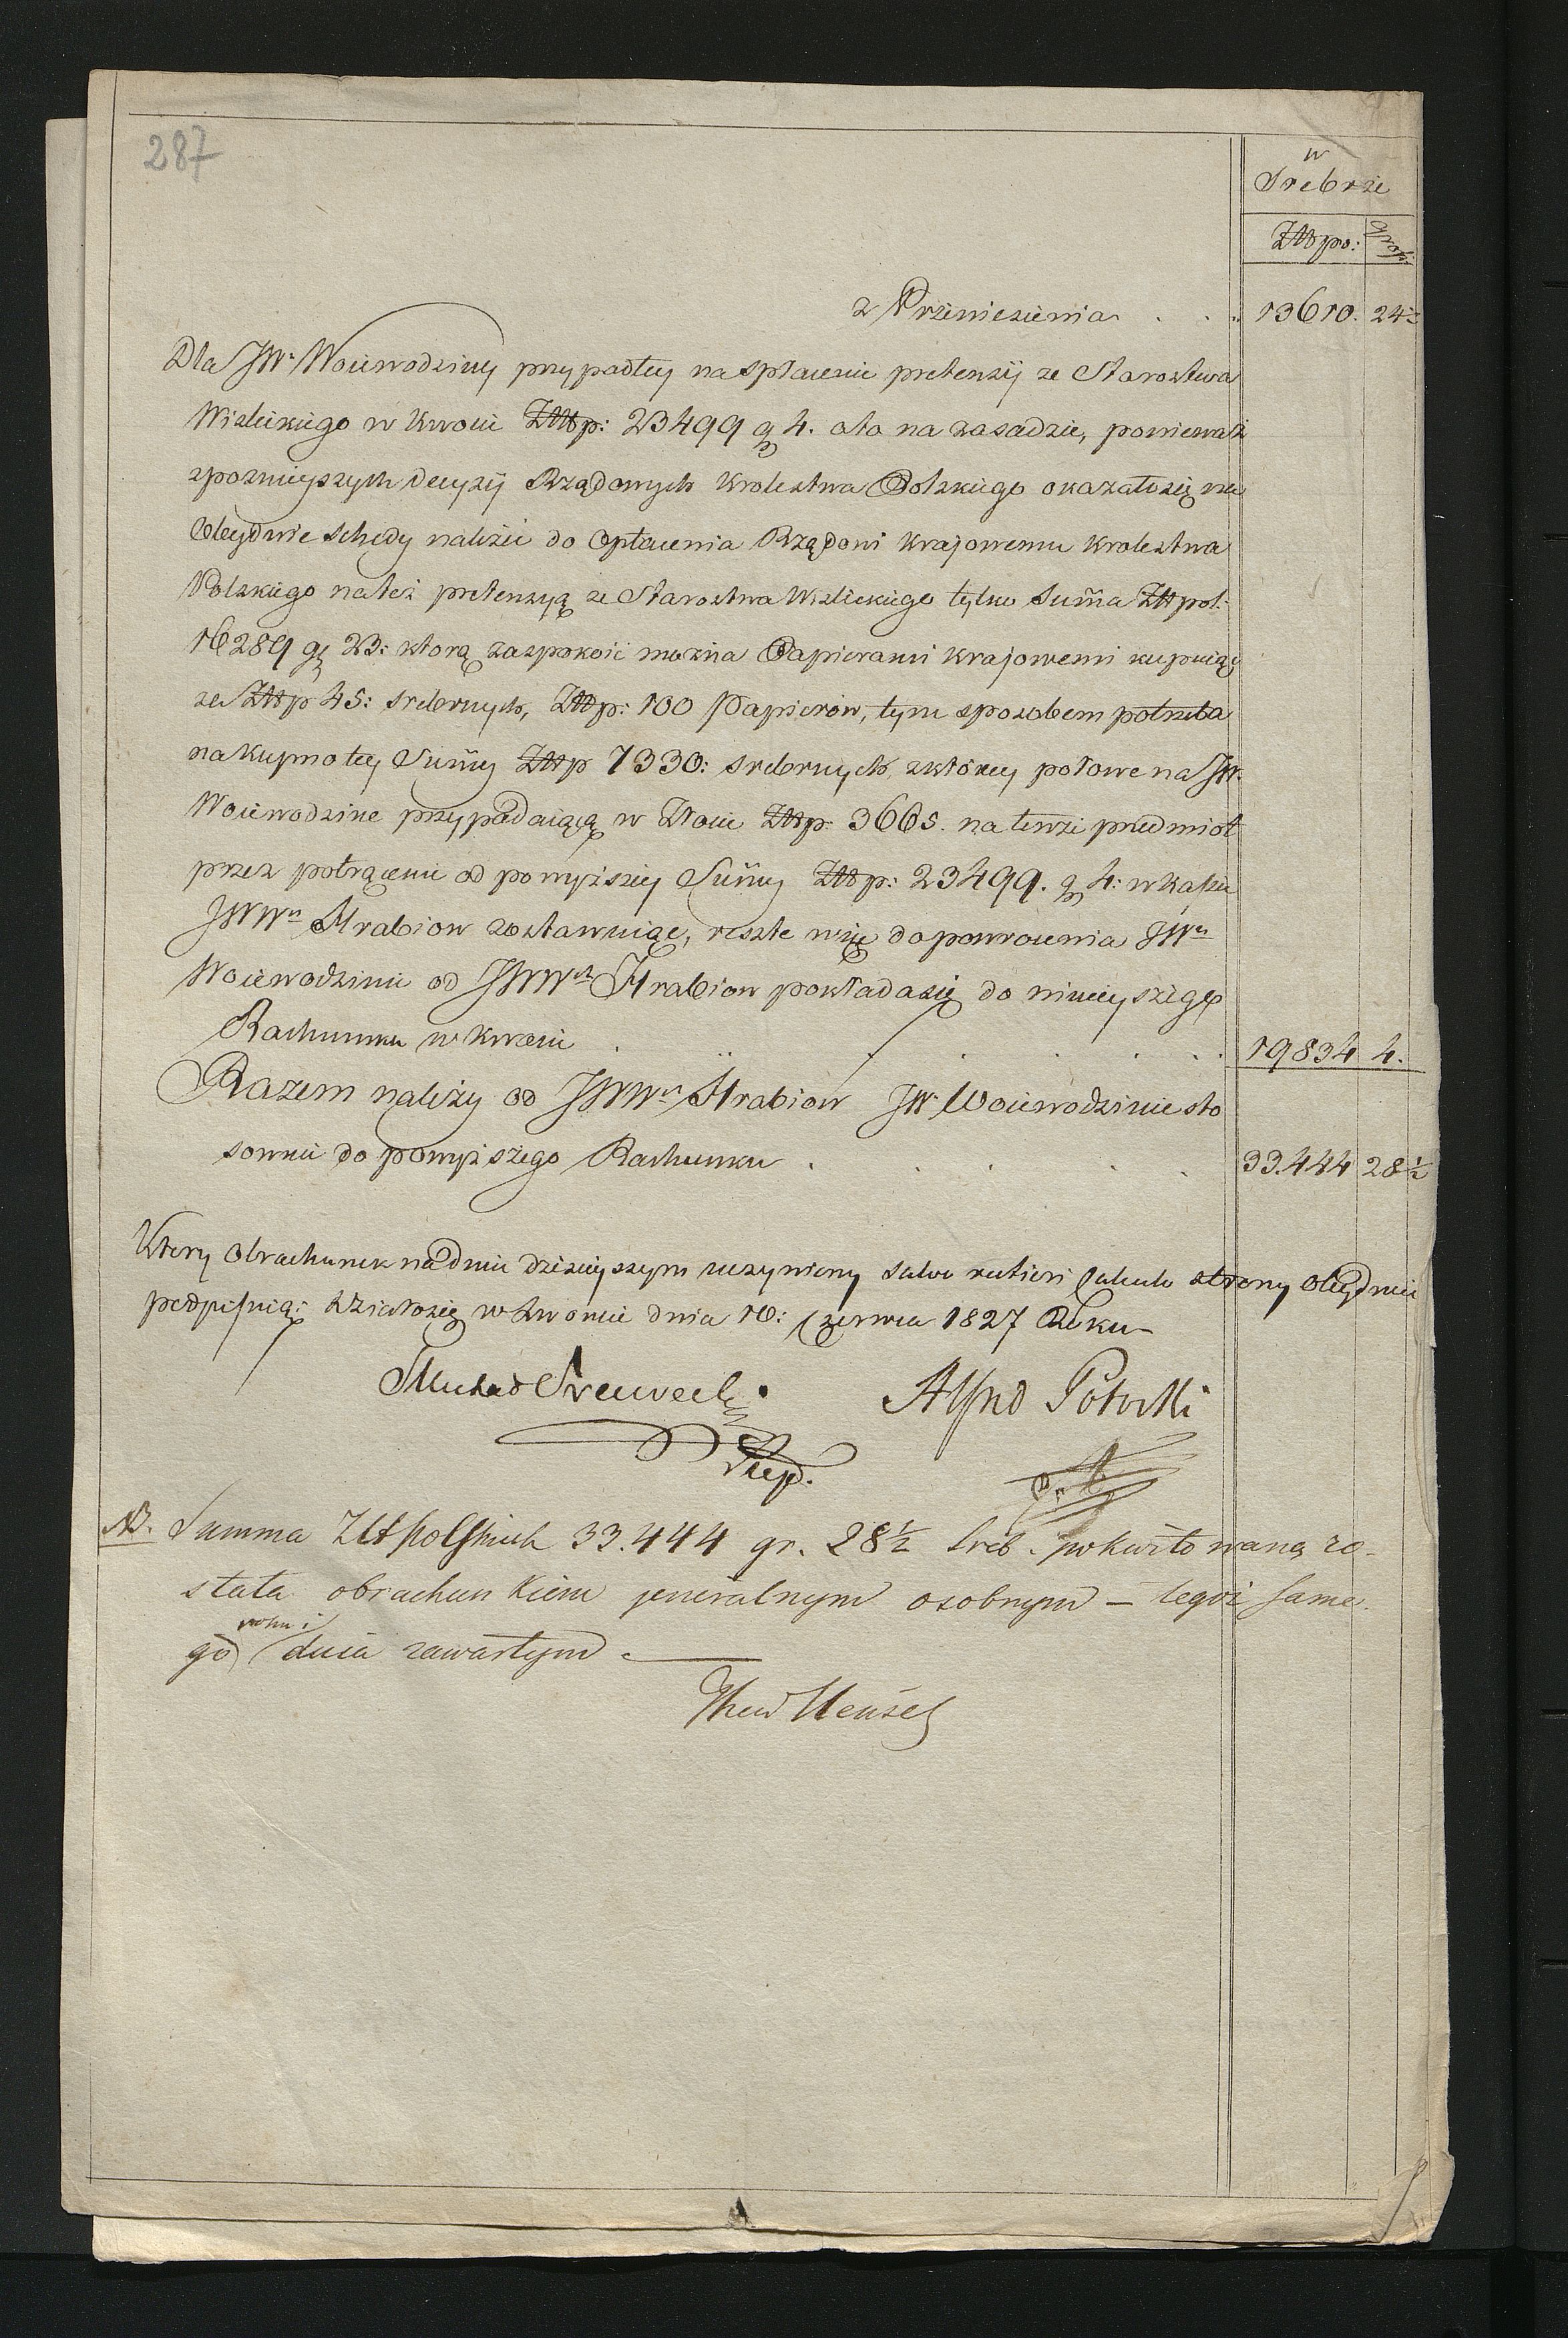 287
w
Srebrze
Złłpo: Grosz:
z Przeniesienia . . . 13610. 24½
Dla JW. Woiewodziny przypadłey na spłacenie pretensij ze Starostwa
Wislickiego w Kwocie Złłp: 23499 gr 4. oto na zasadzie, poniewasz
zpoznieyszych decyzij Rządowych Krolestwa Polskiego okazało się na
Obeydwie schedy należeć do Opłacenia Rządowi Krajowemu Krolestwa
Polskiego na też pretensyą ze Starostwa Wislickiego tylko Suma Złłpol:
16289 gr 23: ktorą zaspokoić można Papierami Krajowemi kupuiąc
za Złłp 45: srebrnych, Złłp: 100 Papierów, tym sposobem potrzeba
na Kupno tey Sumy Złłp 7330: srebrnych, zktórey połowe na JW.
Woiewodzine przypadaiącą w Kwocie Złłp 3665. na tenże przedmiot
przez potrącenie od powyższey Sumy Złłp: 23499. gr 4: w Kassie
JWWch Hrabiow zostawuiąc, reszte więc do powrocenia JWey
Woiewodzinie od JWWch Hrabiow pokłada się do ninieyszego
Rachunku w Kwocie . . . . . . 19834 4.
Razem należy od JWWch Hrabiow JW. Woiewodzinie sto
sownie do powyższego Rachunku . . . . . 33.444 28½
Ktory Obrachunek na Dniu dzisieyszym uczyniony salvo erroris Calculo strony obiedwie
podpisuią: Działo się we Lwowie dnia 16: Czerwca 1827 Roku
Alfred Potocki
NB. Summa Złł polskich 33.444 gr. 28½ Sreb. pokwitowaną zo-
stała obrachunkiem jeneralnym osobnym — tegoż same-
go roku i dnia zawartym.